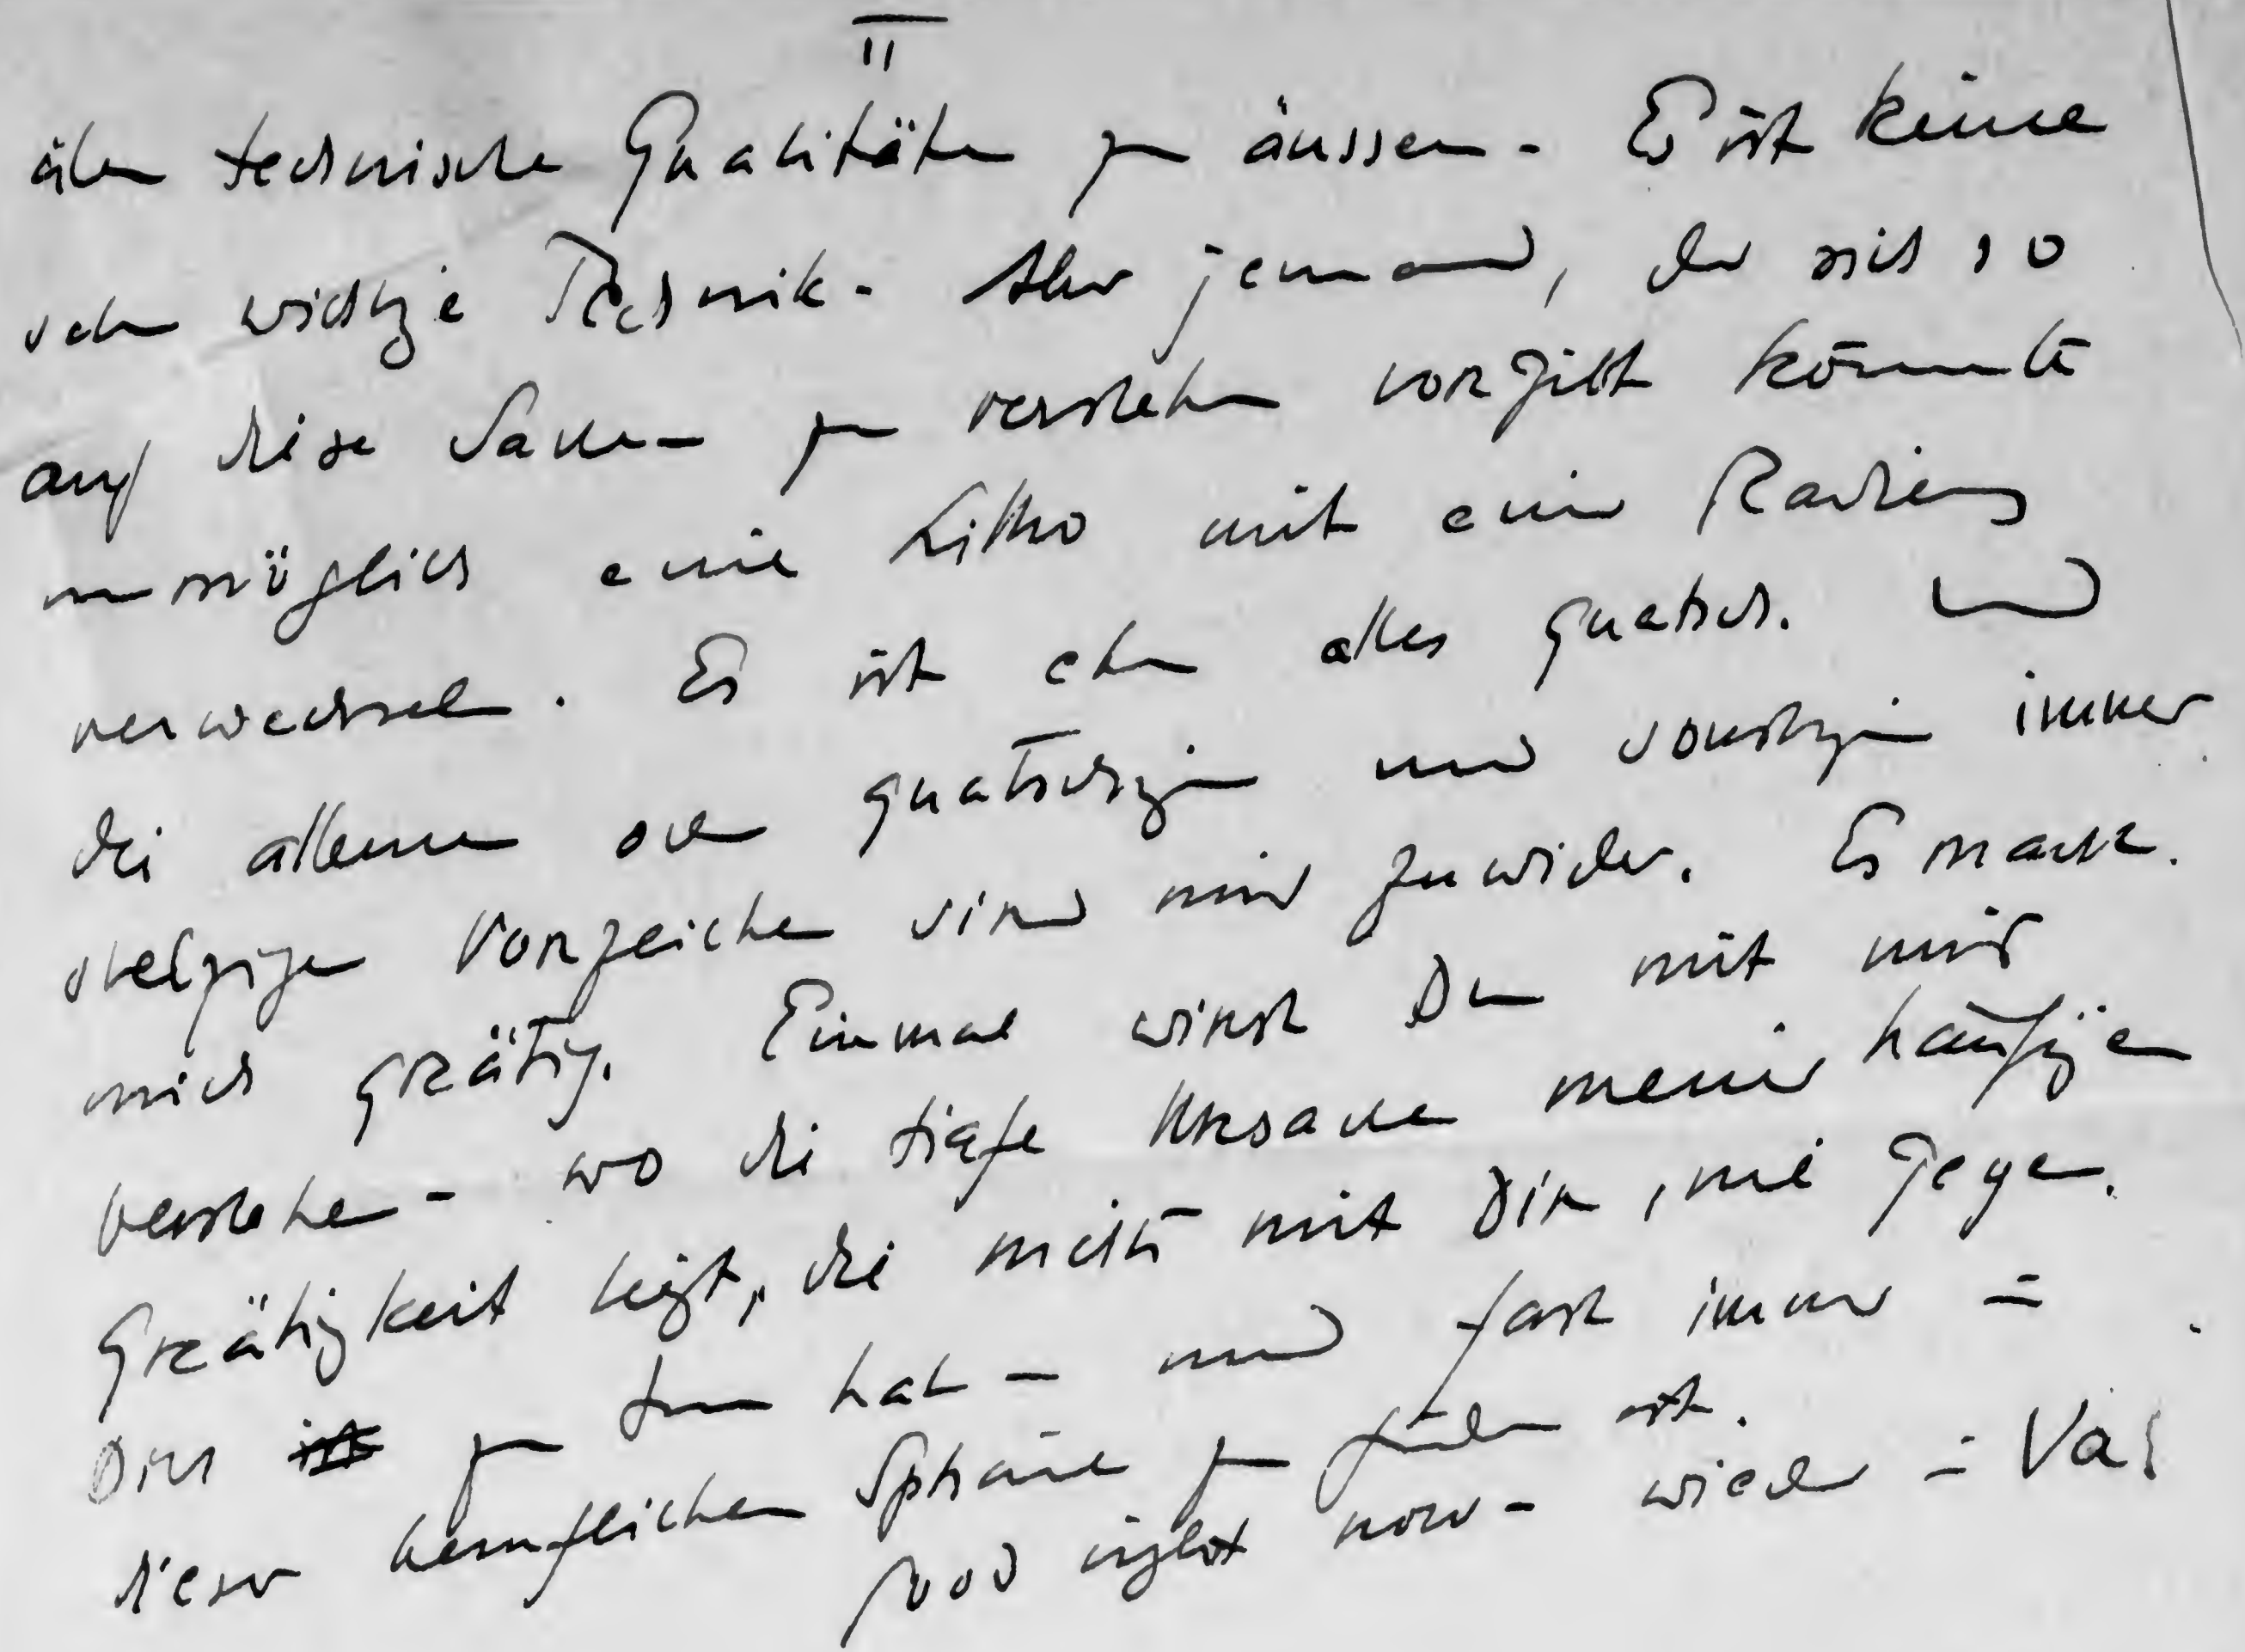 II
über technische Qualitäten zu äussern - Es ist keine
sehr wichtige Technik - Aber jemand, der sich so
auf diese Sachen zu verstehen vorgibt könnte
unmöglich eine Litho mit einer Radierung
verwechseln. Es ist eben alles Quatsch. Und
die allem quatschigen und sonstigen immer
Vorzeichen sind mir zuwider. Es macht
mich grätig. Einmal wirst Du mit mir
verstehen - wo die tiefe Ursache meiner häufigen
Grätigkeit liegt, die nichts mit Dir, nie gegen
Dich zu tun hat - und fast immer =
dieser beruflichen Sphäre zu finden ist.
good night now - wieder = Va